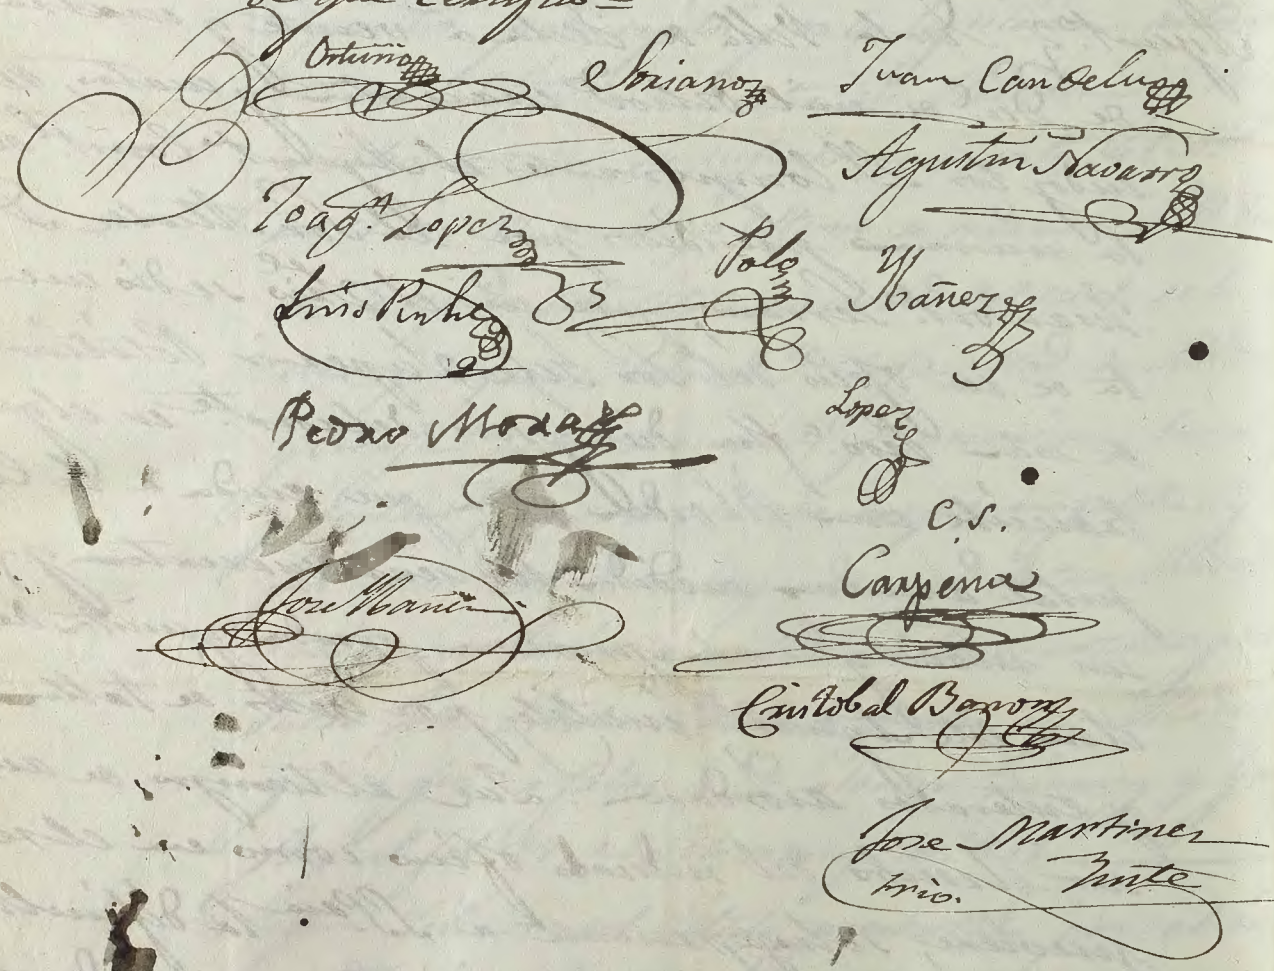 Ortuño Soriano Juan Candela
Agustin Navarro
Joaqn. Lopez
Polo Ybañez
Luis Pinhe
Lopez
Pedro Mora
C. S.
Carpena
Jose Ybañez
Cristobal Baron
Jose Martinez
Srio.